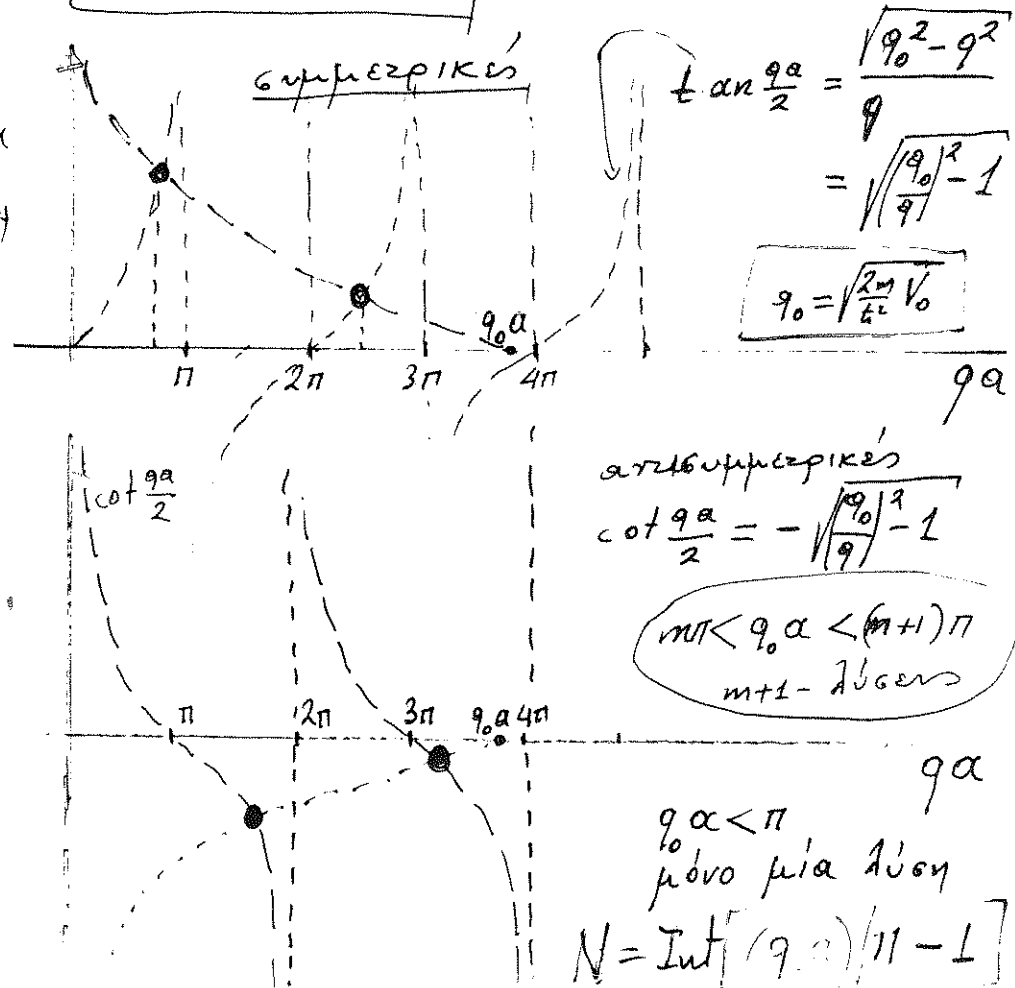 συμμετρικές
tan qa/2 = √(q₀² - q²) / q
= √((q₀/q)² - 1)
q₀ = √(2m/ħ² V₀)
q₀a
π 2π 3π 4π
qa
cot qa/2
αντισυμμετρικές
cot qa/2 = - √((q₀/q)² - 1)
mπ < q₀a < (m+1)π
m+1 - λύσεις
π 2π 3π q₀a 4π
qa
q₀a < π
μόνο μία λύση
N = Int[(q a)/π - 1]